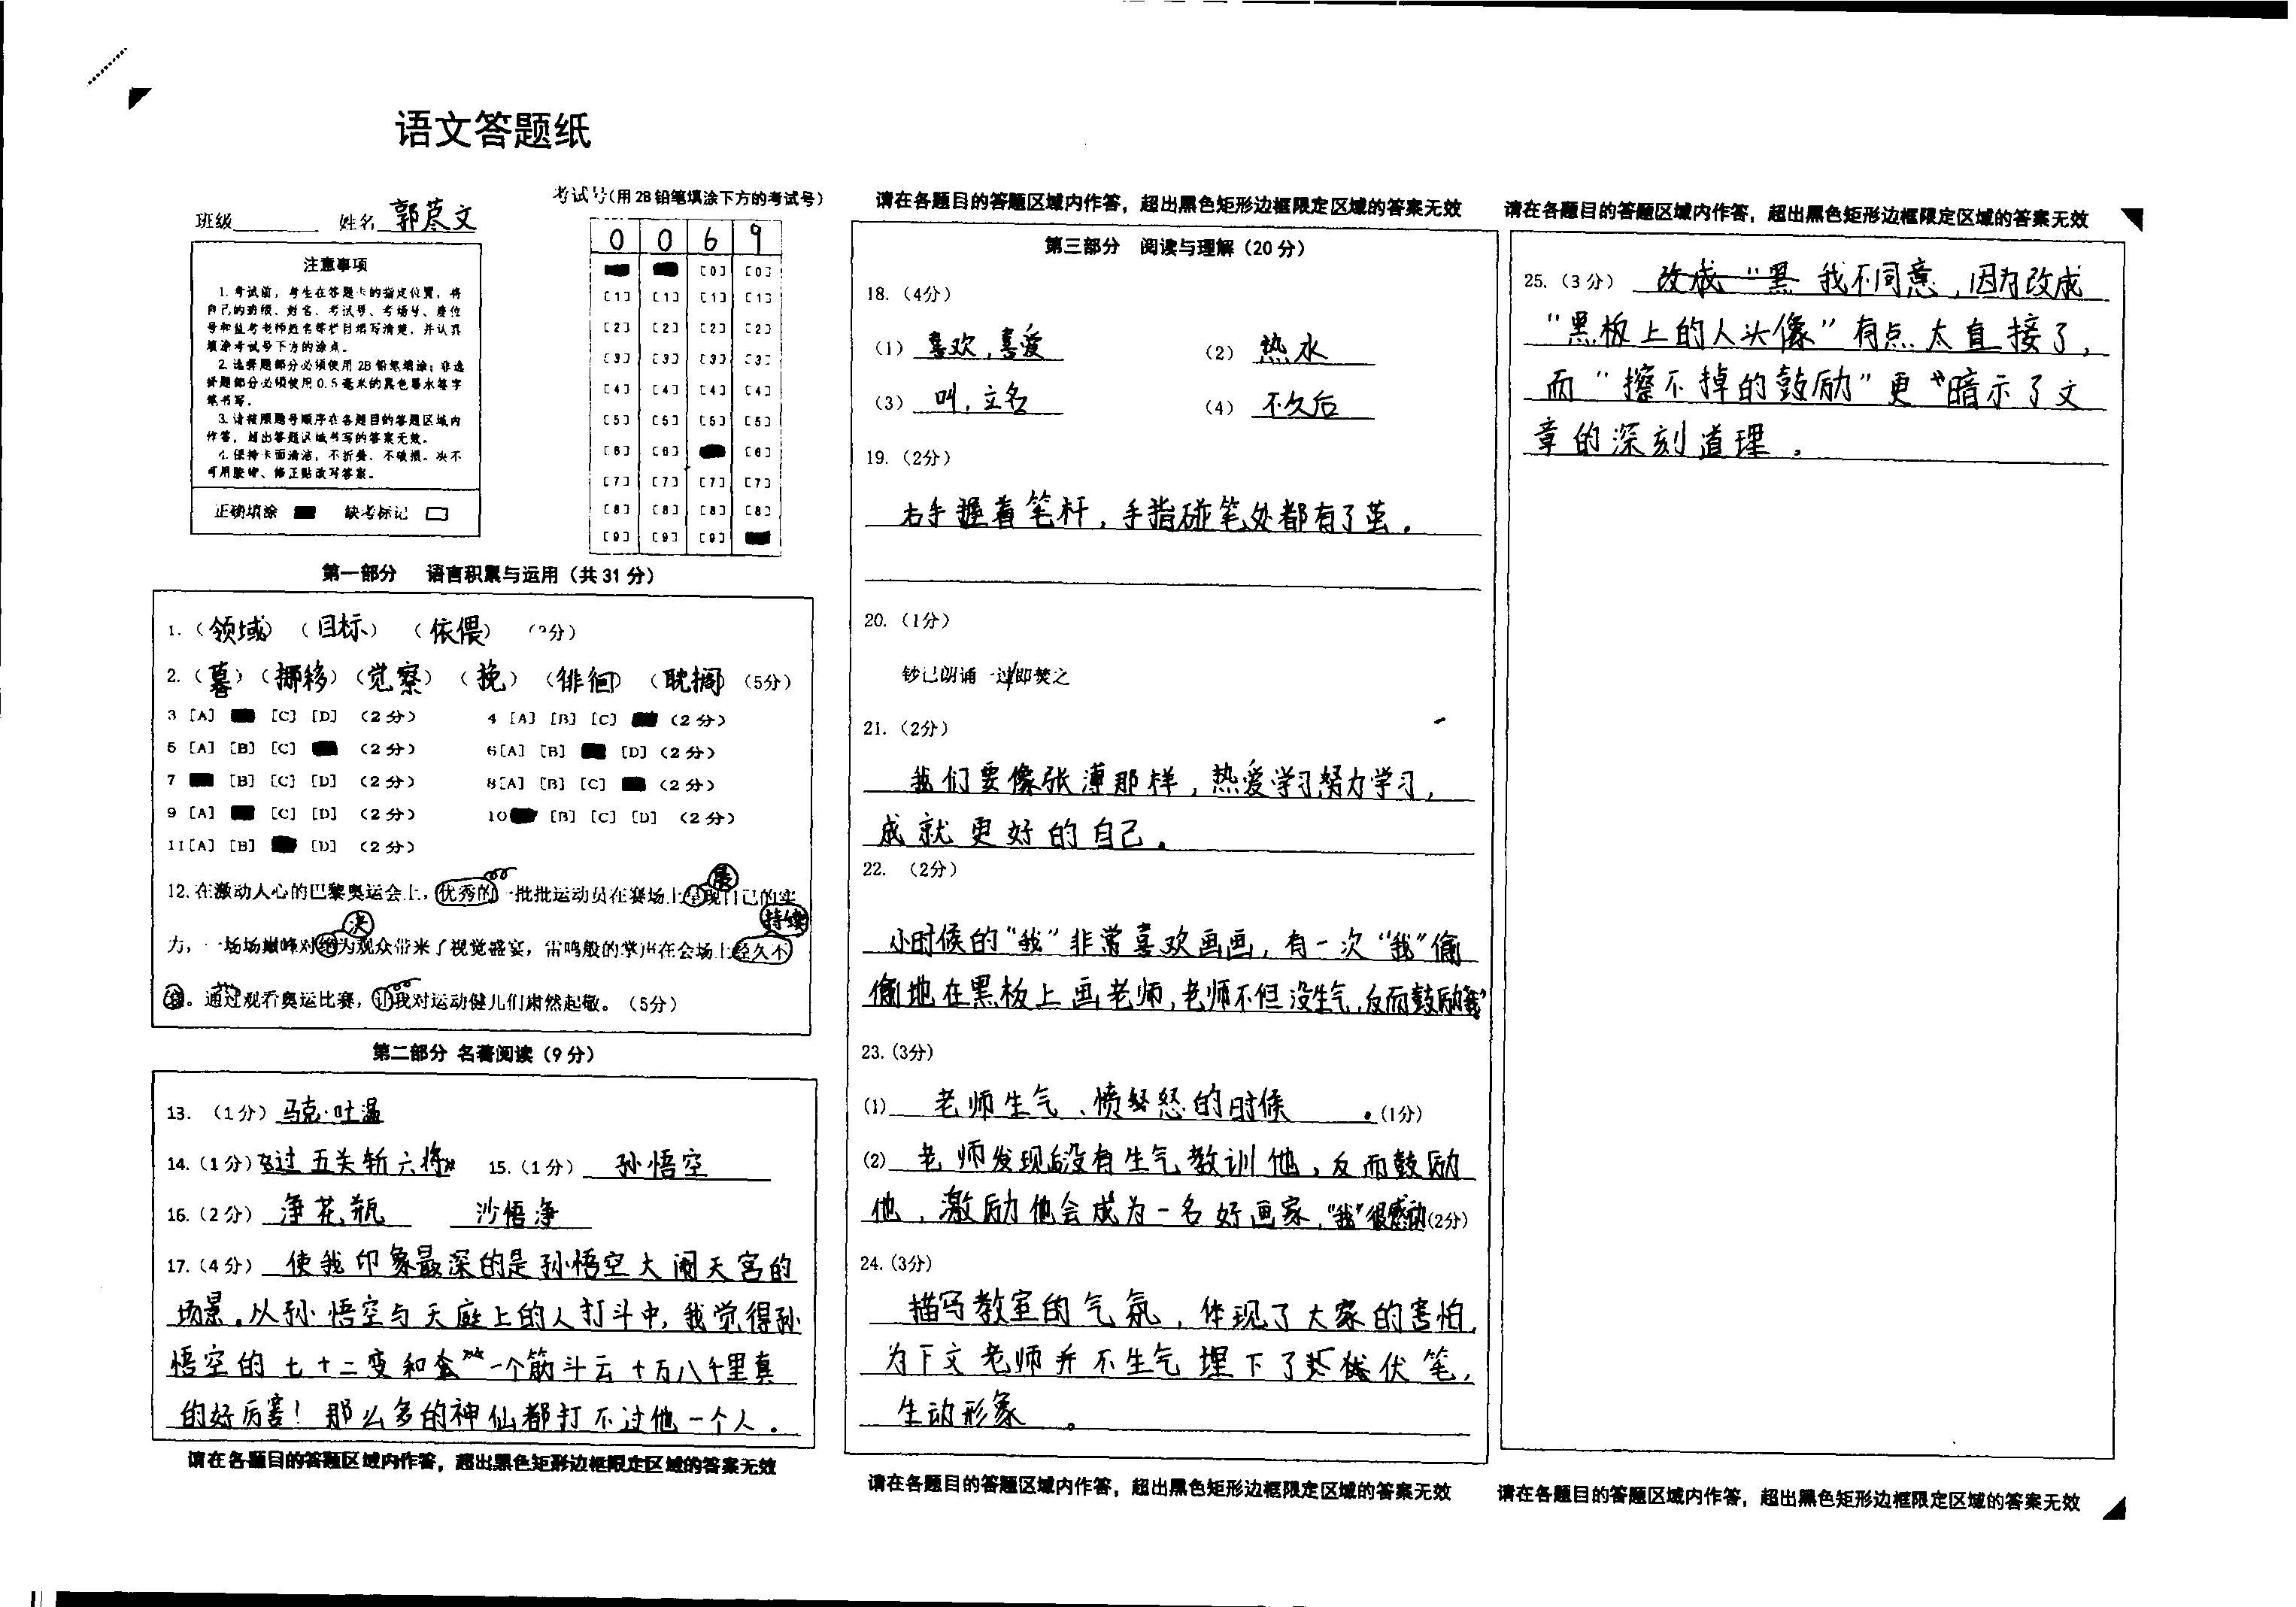 语文答题纸
班级 姓名 郭荩文
考试号(用2B铅笔填涂下方的考试号)
0 0 6 9
注意事项
1.考试前，考生在答题卡的指定位置，将
自己的班级、姓名、考试号、考场号、座位
号和监考老师姓名等栏目填写清楚，并认真
填涂考试号下方的涂点。
2.选择题部分必须使用2B铅笔填涂；非选
择题部分必须使用0.5毫米的黑色墨水签字
笔书写。
3.请按照题号顺序在各题目的答题区域内
作答，超出答题区域书写的答案无效。
4.保持卡面清洁，不折叠、不破损。决不
可用胶带、修正贴改写答案。
正确填涂 缺考标记
[0] [0]
[1] [1] [1] [1]
[2] [2] [2] [2]
[3] [3] [3] [3]
[4] [4] [4] [4]
[5] [5] [5] [5]
[6] [6] [6]
[7] [7] [7] [7]
[8] [8] [8] [8]
[9] [9] [9]
第一部分 语言积累与运用（共31分）
1.（领域）（目标）（依偎）
2.（暮）（挪移）（觉察）（挽）（徘徊）（耽搁）（5分）
3 [A] [C] [D] （2分） 4 [A] [B] [C] （2分）
5 [A] [B] [C] （2分） 6[A] [B] [D]（2分）
7 [B] [C] [D] （2分） 8[A] [B] [C] （2分）
9 [A] [C] [D] （2分） 10 [B] [C] [D] （2分）
11[A] [B] [D] （2分）
展
12.在激动人心的巴黎奥运会上，优秀的一批批运动员在赛场上呈现自己的实
决 持续
力，一场场巅峰对绝为观众带来了视觉盛宴，雷鸣般的掌声在会场上经久不
。通过观看奥运比赛，让我对运动健儿们肃然起敬。（5分）
第二部分 名著阅读（9分）
13.（1分）马克·吐温
14.（1分）过五关斩六将 15.（1分）孙悟空
16.（2分）净花瓶 沙悟净
17.（4分）使我印象最深的是孙悟空大闹天宫的
场景。从孙悟空与天庭上的人打斗中，我觉得孙
悟空的七十二变和一个筋斗云十万八千里真
的好厉害！那么多的神仙都打不过他一个人。
请在各题目的答题区域内作答，超出黑色矩形边框限定区域的答案无效
请在各题目的答题区域内作答，超出黑色矩形边框限定区域的答案无效
第三部分 阅读与理解（20分）
18.（4分）
（1）喜欢，喜爱 （2）热水
（3）叫，立名 （4）不久后
19.（2分）
右手握着笔杆，手指碰笔处都有了茧。
20.（1分）
钞已朗诵一过/即焚之
21.（2分）
我们要像张溥那样，热爱学习努力学习，
成就更好的自己。
22.（2分）
小时候的“我”非常喜欢画画，有一次“我”偷
偷地在黑板上画老师，老师不但没生气，反而鼓励“我”
23.(3分)
(1) 老师生气、愤怒的时候 。(1分)
(2) 老师发现后没有生气教训他，反而鼓励
他，激励他会成为一名好画家，“我”很感动(2分)
24.(3分)
描写教室的气氛，体现了大家的害怕，
为下文老师并不生气埋下了伏笔，
生动形象。
请在各题目的答题区域内作答，超出黑色矩形边框限定区域的答案无效
请在各题目的答题区域内作答，超出黑色矩形边框限定区域的答案无效
25.（3分）改成“黑 我不同意，因为改成
“黑板上的人头像”有点太直接了，
而“擦不掉的鼓励”更暗示了文
章的深刻道理。
请在各题目的答题区域内作答，超出黑色矩形边框限定区域的答案无效